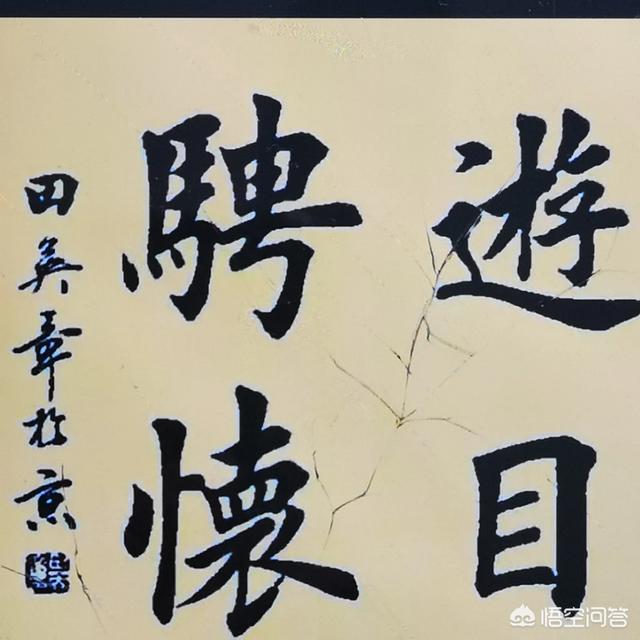 遊目
騁懷
田英章於京
悟空问答